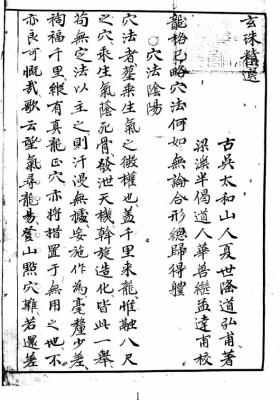 玄珠精選
古吳太和山人夏世隆道弘甫著
梁溪半偈道人華善繼孟達甫校
龍格已略穴法何如無論合形總歸得體
穴法陰陽
穴法者塟乘生氣之微權也蓋千里來龍惟融八尺
之穴乘生氣蔭死骨發泄天機斡旋造化皆此一舉
苟無定法以主之則汗漫無據妄施作為毫釐少差
禍福千里縱有真龍正穴亦將措置于無用之地不
亦良可慨哉歌云望氣尋龍易登山點穴難若還差
1